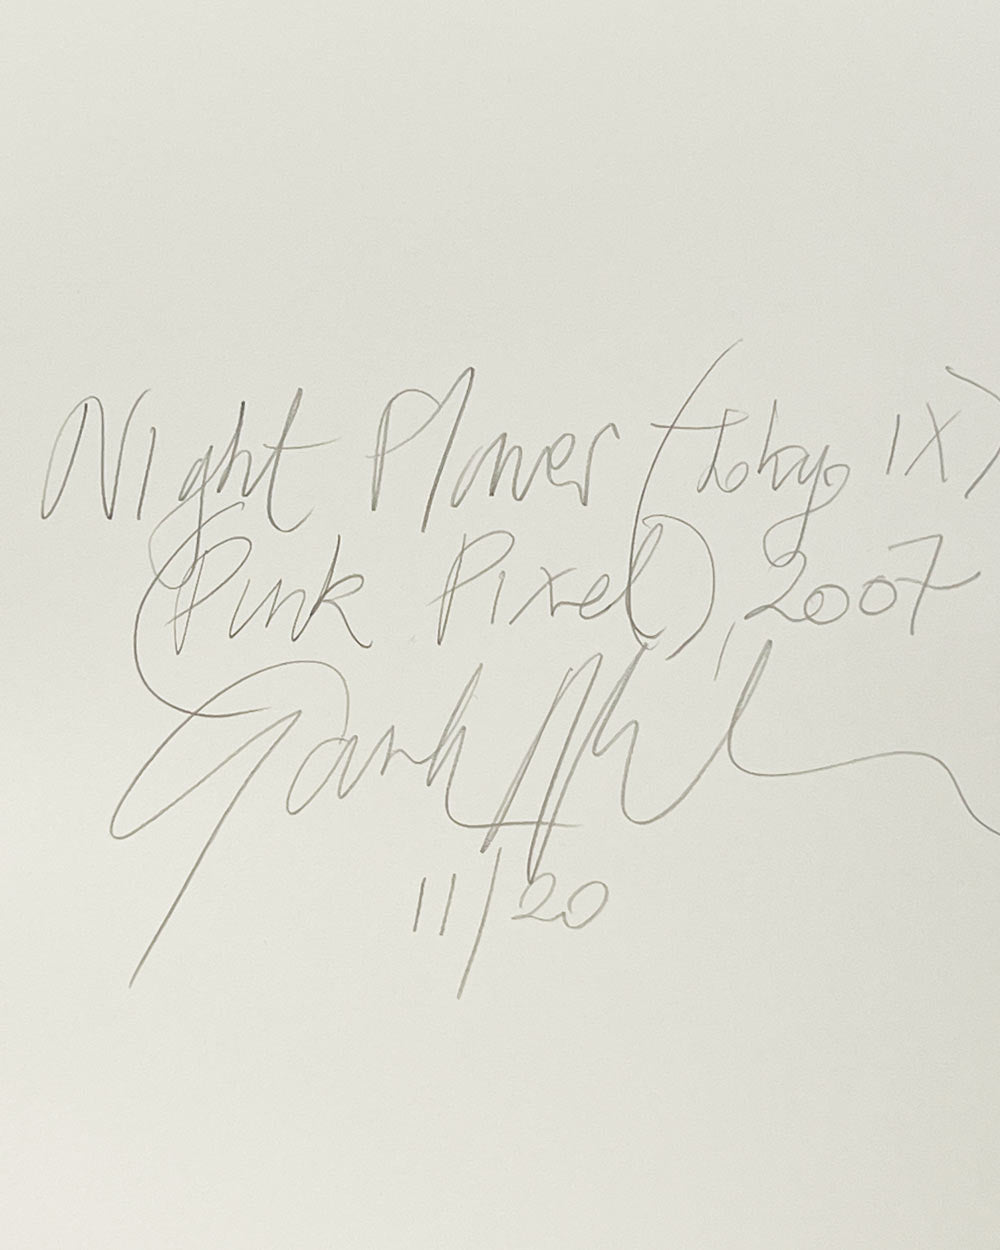 Night Planer (Tokyo IX)
(Pink Pixel), 2007
11/20